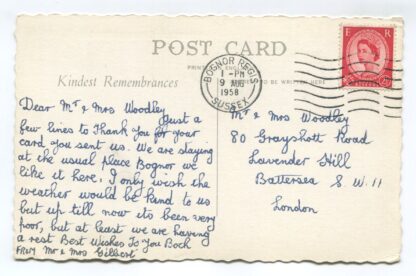 POST CARD
PRINTED
ENGL
TO BE WRITTEN HERE
Kindest Remembrances
BOGNOR REGIS
1-PM
9 AUG
1958
SUSSEX
E R
Dear Mr & Mrs Woodley
Just a
few lines to Thank You for your
card you sent us. We are staying
at the usual place Bognor we
like it here, I only wish the
weather would be kind to us
but up till now its been very
poor, but at least we are having
a rest Best Wishes To You Boch
FROM Mr & Mrs Gilbert
Mr & Mrs Woodley
80 Grayshott Road
Lavender Hill
Battersea S.W.11
London